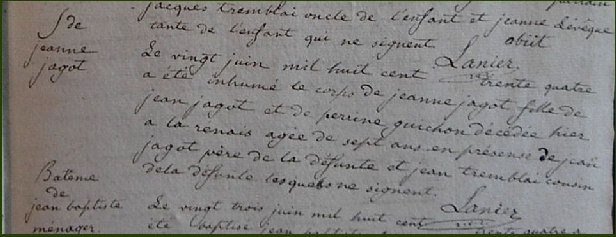 jacques tremblai oncle de l'enfant et jeanne Levêque
tante de l'enfant qui ne signent obiit
Lanier.
S de
jeanne
jagot
Le vingt juin mil huit cent trente quatre
a été inhumé le corps de jeanne jagot fille de
jean jagot et de perune guichon décédée hier
a la renais agée de sept ans en présense de jean
jagot père de la défunte et jean tremblai cousin
de la défunte lesquels ne signent.
Lanier
Bateme
de
jean baptiste
menager.
Le vingt trois juin mil huit cent trente quatre a
été baptisé jean